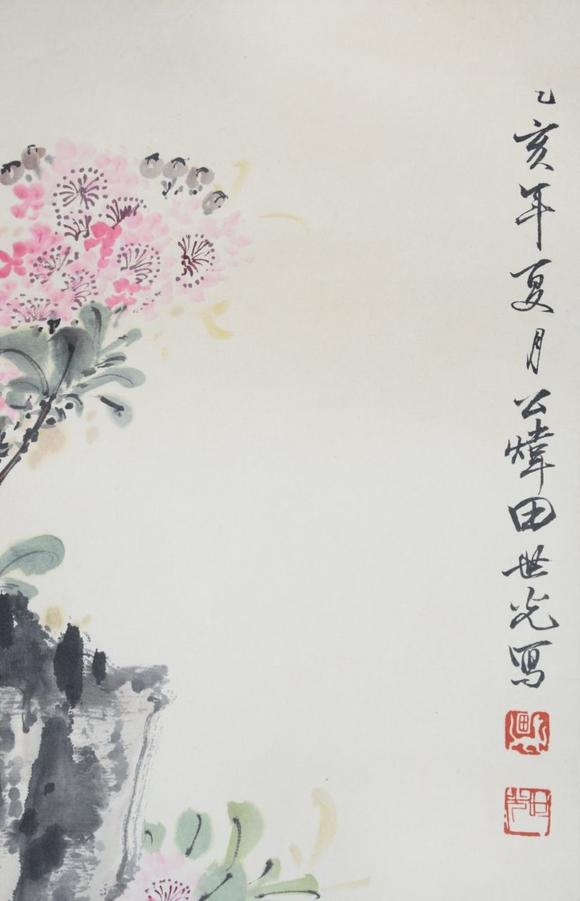 乙亥年夏月公煒田世光写